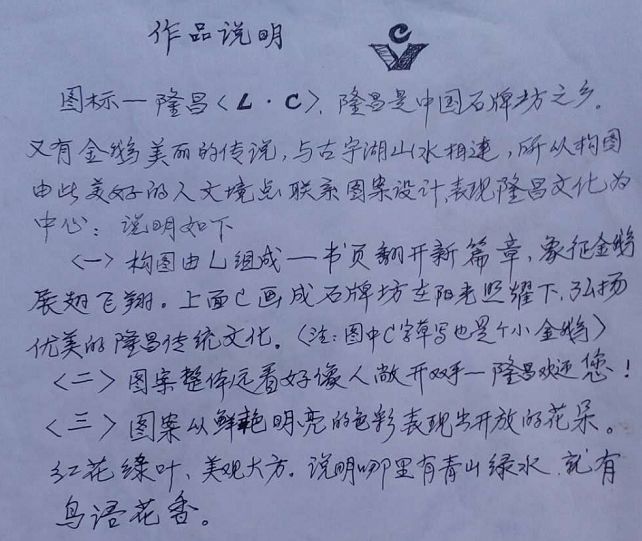 作品说明
图标一隆昌〈L·C〉。隆昌是中国石牌坊之乡。
又有金鹅美丽的传说,与古宇湖山水相连,所以构图
由此美好的人文境点联系图案设计,表现隆昌文化为
中心:说明如下
〈一〉构图由L组成一书页翻开新篇章,象征金鹅
展翅飞翔。上面C画成石牌坊在阳光照耀下,弘扬
优美的隆昌传统文化。〈注:图中C字草写也是个小金鹅〉
〈二〉图案整体远看好像人敞开双手一隆昌欢迎您!
〈三〉图案以鲜艳明亮的色彩表现出开放的花朵。
红花绿叶、美观大方。说明哪里有青山绿水,就有
鸟语花香。